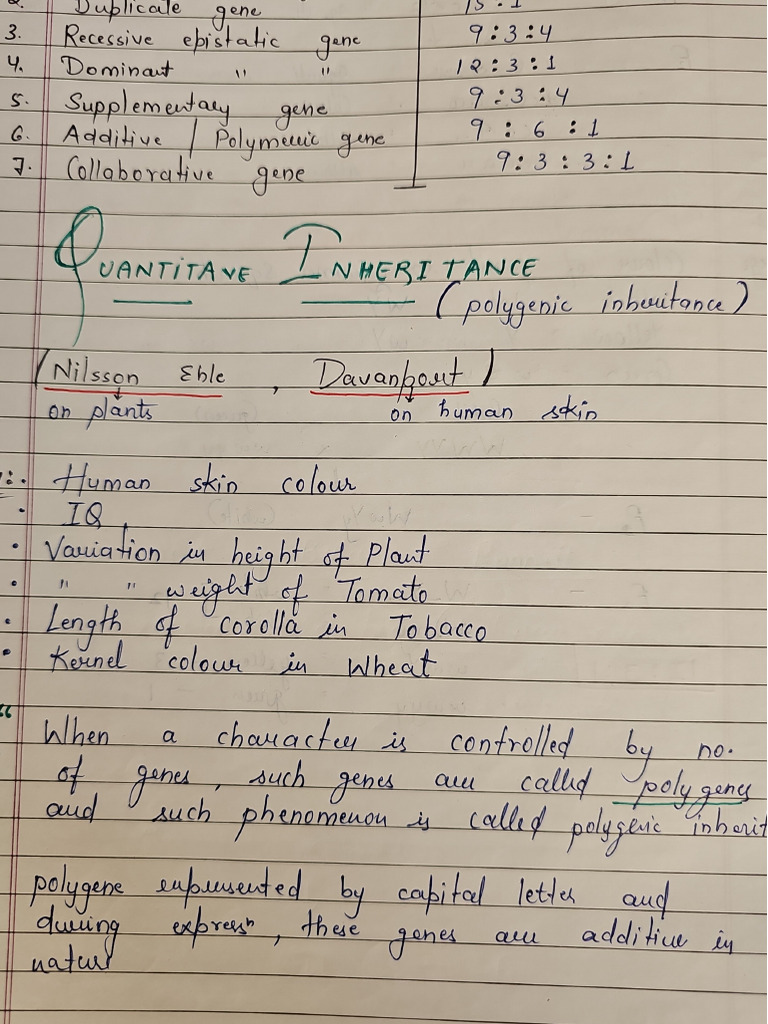 2. Duplicate gene 15:1
3. Recessive epistatic gene 9:3:4
4. Dominant " " 12:3:1
5. Supplementary gene 9:3:4
6. Additive / Polymeric gene 9:6:1
7. Collaborative gene 9:3:3:1
QUANTITAVE INHERITANCE
(polygenic inheritance)
(Nilsson Ehle, Davanport)
on plants on human skin
Human skin colour
• IQ
• Variation in height of Plant
• " " weight of Tomato
• Length of corolla in Tobacco
• Kernel colour in Wheat
"When a character is controlled by no.
of genes, such genes are called polygenes
and such phenomenon is called polygenic inherit
polygene represented by capital letter and
during expressⁿ, these genes are additive in
nature